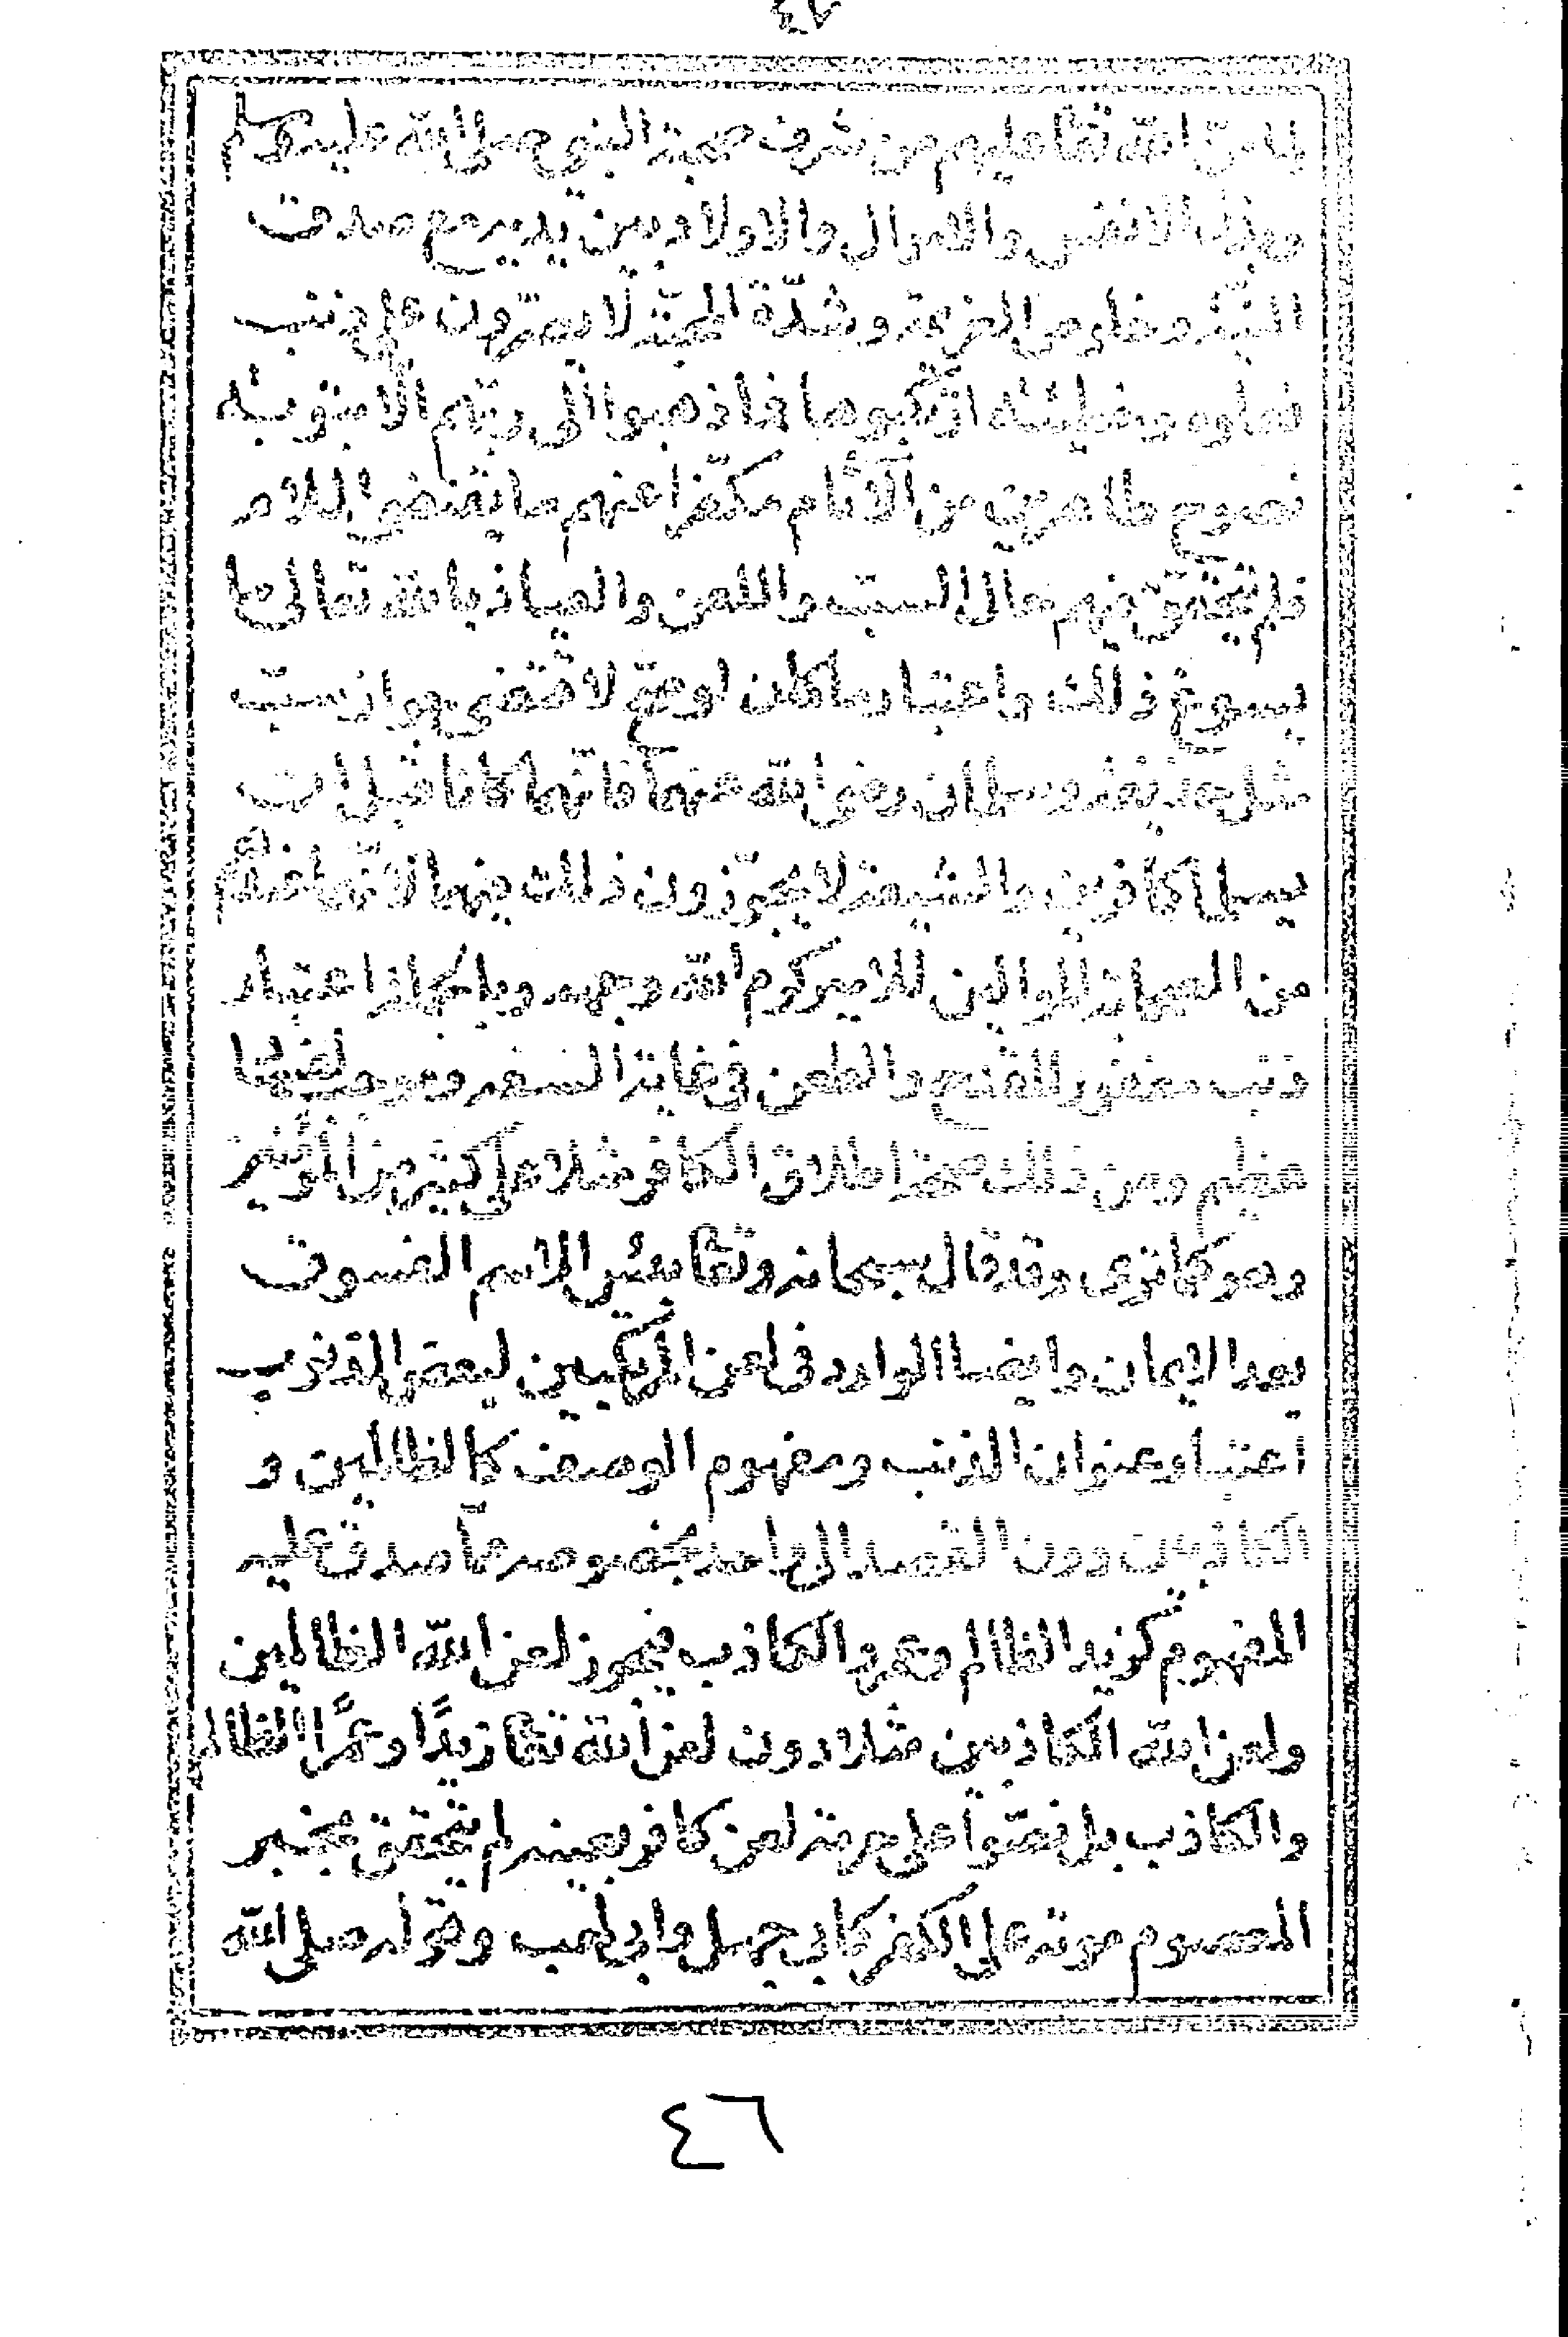 ٤٧
لما منّ الله تعا عليهم من شرف صحبة النبي صلى الله عليه وسلم
وبذل الانفس والاموال والاولاد بين يديه مع صدق
النية وخلوص العزيمة وشدّة المحبّة لا يصرّون على ذنب
فعلوه وخطيئته ارتكبوها فما ذهبوا الى ربّهم الّا بتوبته
نصوح طاهرين من الآثام مكفّرا عنهم ما يقتضي الملام
فلم يتحقق فيهم حال السبّ واللعن والعياذ بالله تعالى ما
يسوغ ذلك واعتبار ما كان لو صحّ لاقتضى جواز سبّ
مثل حذيفة وسلمان رضى الله عنهما فانّهما كانا قبل ان
يسلما كافرين والشيعة لا يجوّزون ذلك فيهما لانّهما عندهم
من الصحابة الموالين للامير كرّم الله وجهه وبالجملة اعتبار
ذنب مغفور للقدح والطعن في غاية السفه وهو جهل
عظيم ومن ذلك صحة اطلاق الكافر مثلا على كثير من المؤمنين
وهو كما ترى وقد قال سبحانه وتعا بئس الاسم الفسوق
بعد الايمان وايضا الوارد في لعن المرتكبين لبعض الذنوب
اعتبار عنوان الذنب ومفهوم الوصف كالظالمين و
الكاذبين دون القصد الى واحد بخصوصه ممّا صدق عليه
المفهوم كزيد الظالم وعمرو الكاذب فيجوز لعن الله الظالمين
ولعن الله الكاذبين مثلا دون لعن الله تعا زيدًا وعمرًا الظالم
والكاذب بل نصّوا على حرمة لعن كافر بعينه لم يتحقق بخبر
المعصوم موته على الكفر كابي جهل وابي لهب وقوله صلى الله
٤٦